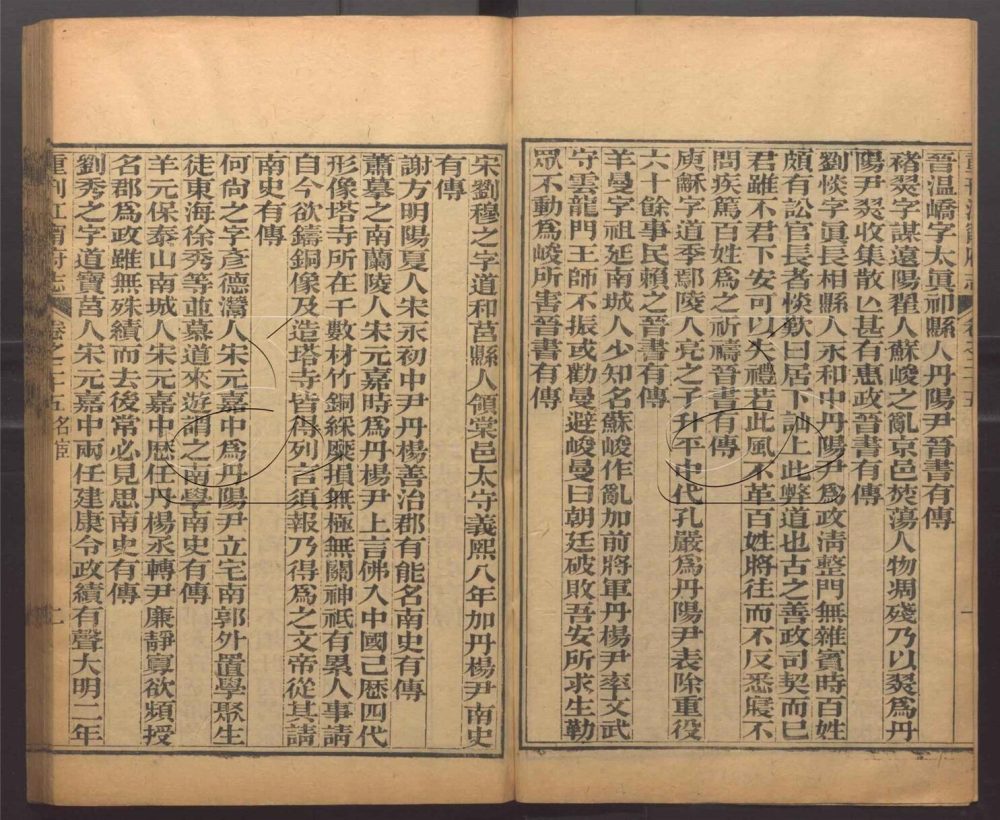 晉溫嶠字太眞祁縣人丹陽尹晉書有傳
褚翜字謀遠陽翟人蘇峻之亂京邑焚蕩人物凋殘乃以翜爲丹
陽尹翜收集散亾甚有惠政晉書有傳
劉惔字眞長相縣人永和中丹陽尹爲政淸整門無雜賓時百姓
頗有訟官長者惔歎曰居下訕上此弊道也古之善政司契而已
君雖不君下安可以失禮若此風不革百姓將往而不反悉寢不
問疾篤百姓爲之祈禱晉書有傳
庾龢字道季鄢陵人亮之子升平中代孔嚴爲丹陽尹表除重役
六十餘事民賴之晉書有傳
羊曼字祖延南城人少知名蘇峻作亂加前將軍丹楊尹率文武
守雲龍門王師不振或勸曼避峻曼曰朝廷破敗吾安所求生勒
眾不動爲峻所害晉書有傳
宋劉穆之字道和莒縣人領棠邑太守義熙八年加丹楊尹南史
有傳
謝方明陽夏人宋永初中尹丹楊善治郡有能名南史有傳
蕭摹之南蘭陵人宋元嘉時爲丹楊尹上言佛入中國已歷四代
形像塔寺所在千數材竹銅綵縻損無極無關神祇有累人事請
自今欲鑄銅像及造塔寺皆得列言須報乃得爲之文帝從其請
南史有傳
何尙之字彥德灊人宋元嘉中爲丹陽尹立宅南郭外置學聚生
徒東海徐秀等並慕道來遊謂之南學南史有傳
羊元保泰山南城人宋元嘉中歷任丹楊丞轉尹廉靜寡欲頻授
名郡爲政雖無殊績而去後常必見思南史有傳
劉秀之字道寶莒人宋元嘉中兩任建康令政績有聲大明二年
重刊江寧府志 卷之二十五 名宦